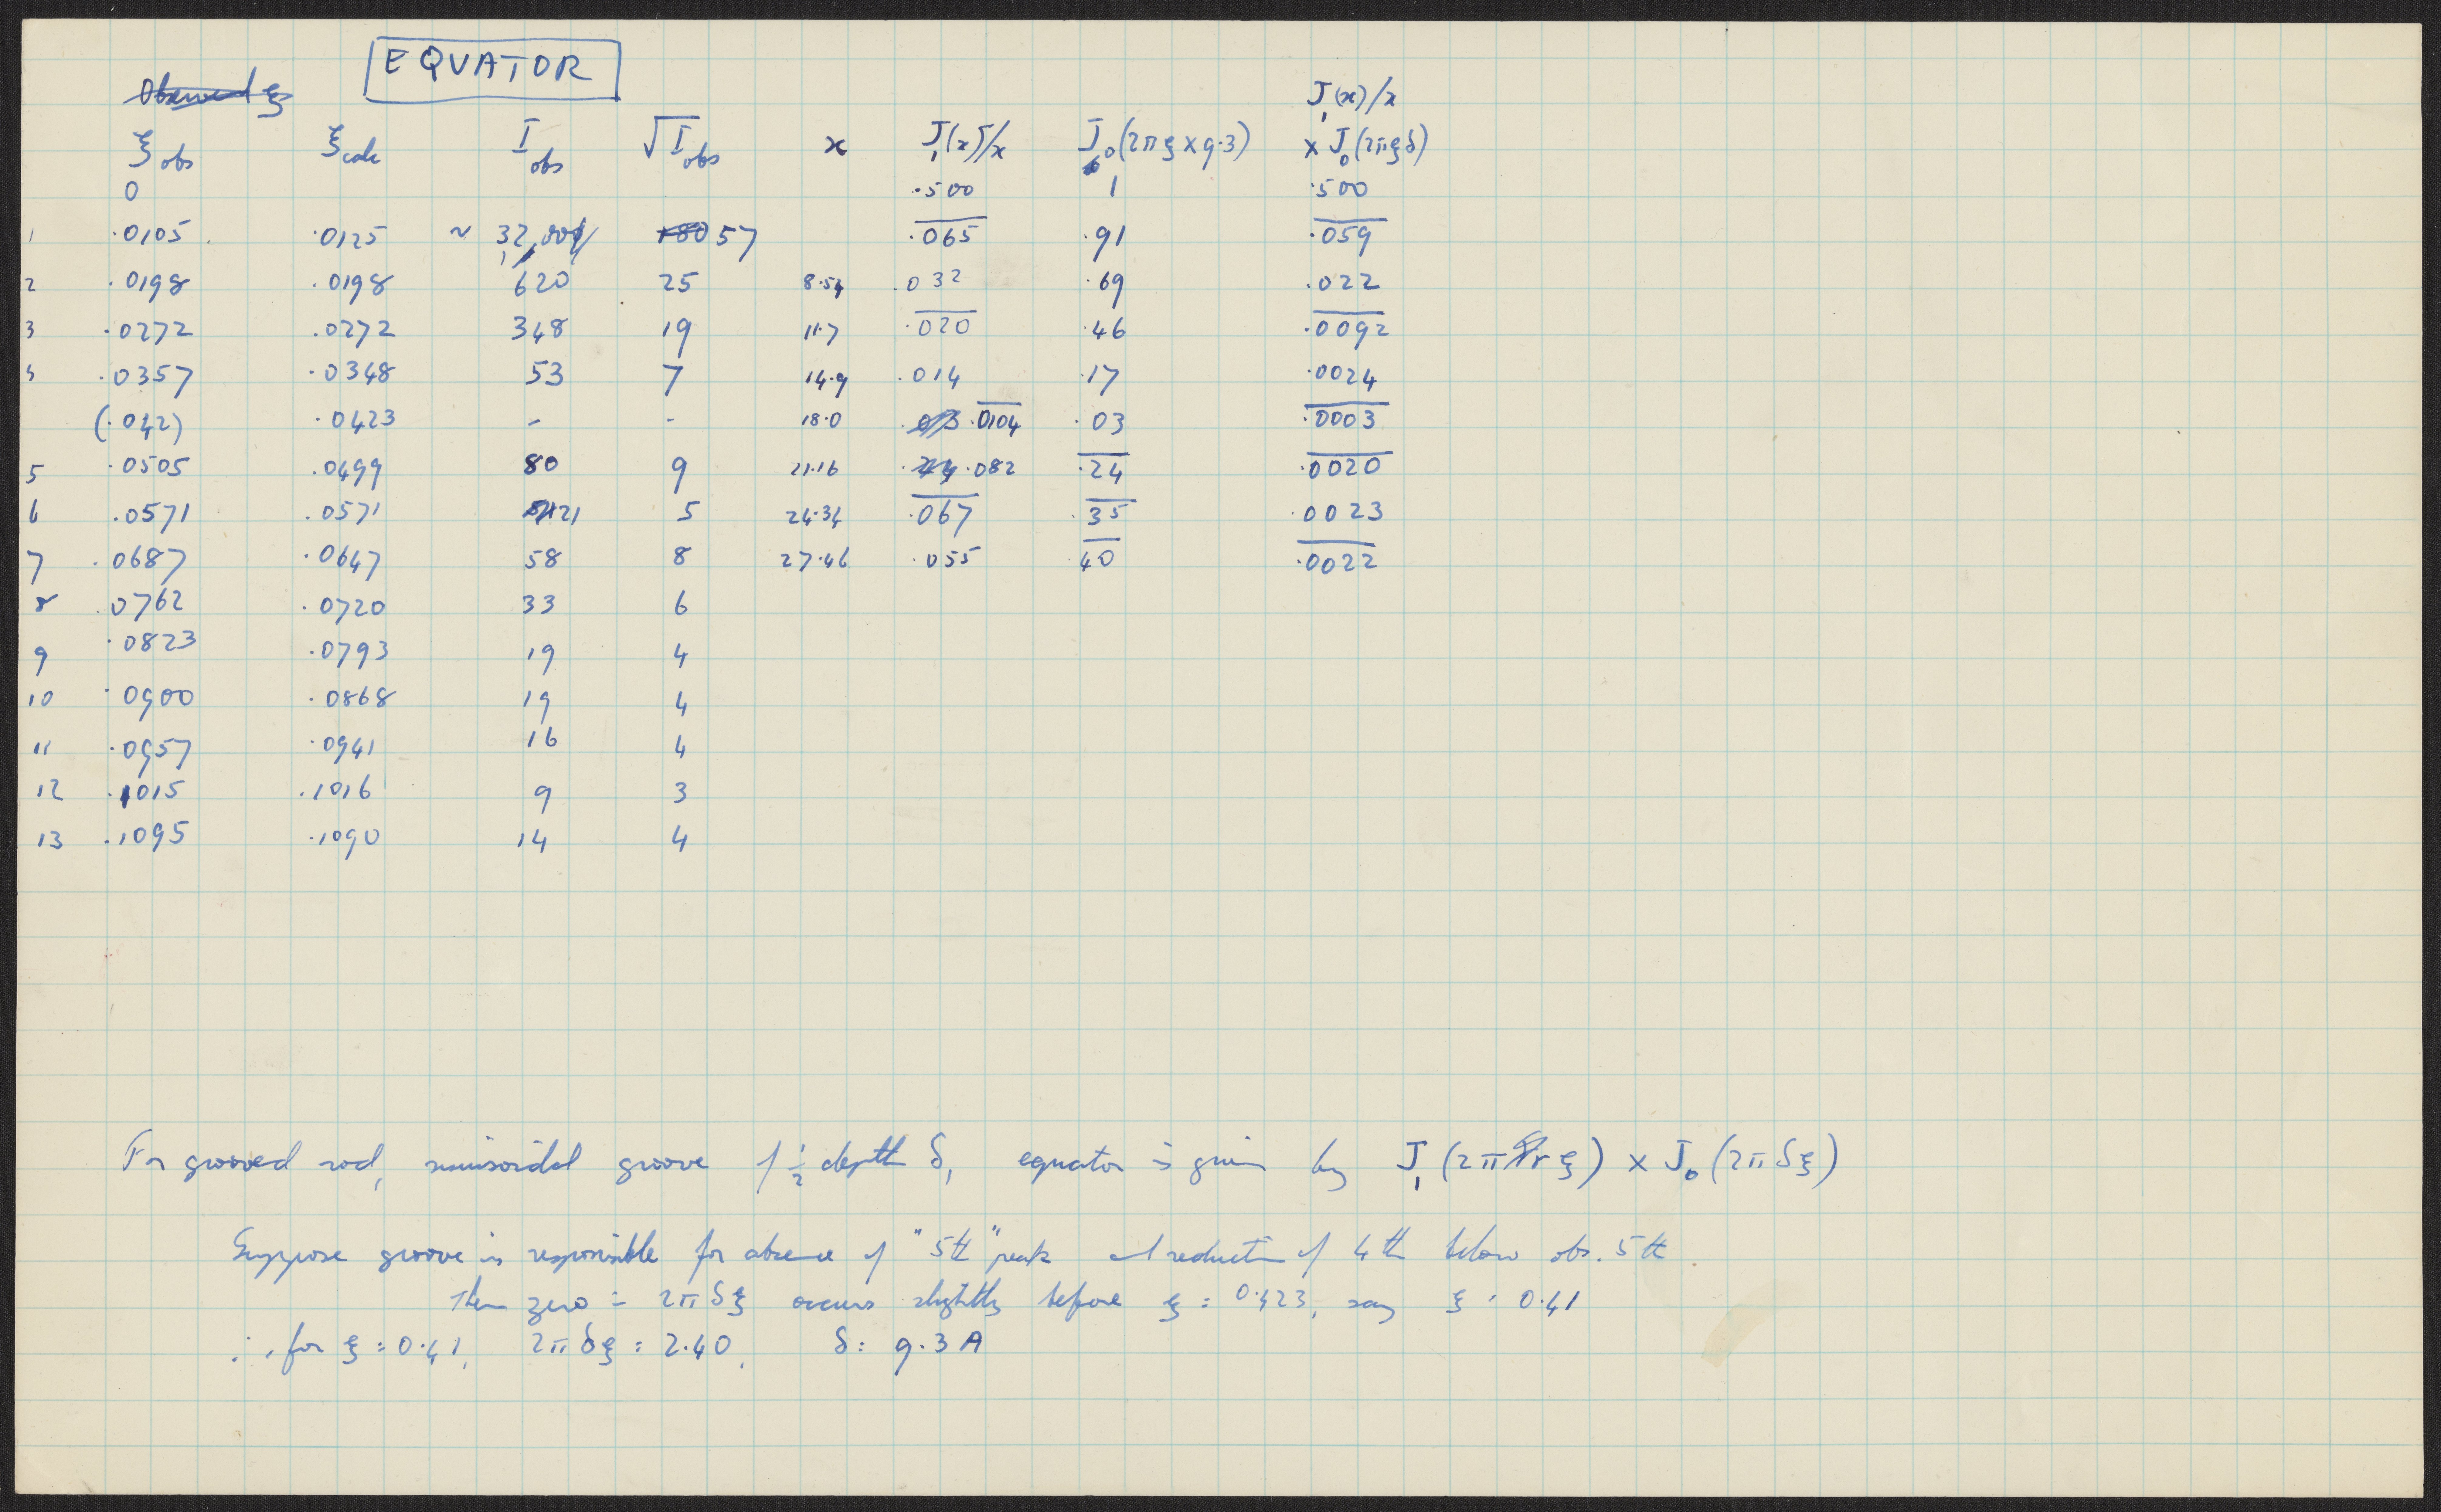 EQUATOR
Observed ξ
J₁(x)/x
ξ obs ξ calc I obs √I obs x J₁(x)/x J₀(2πξ×9.3) × J₀(2πξδ)
0 .500 1 .500
1 .0105 .0125 ~ 32,00 180 57 .065 .91 .059
2 .0198 .0198 620 25 8.54 .032 .69 .022
3 .0272 .0272 348 19 11.7 .020 .46 .0092
4 .0357 .0348 53 7 14.9 .014 .17 .0024
(.042) .0423 - - 18.0 .0104 .03 .0003
5 .0505 .0499 80 9 21.16 .082 .24 .0020
6 .0571 .0571 21 5 24.34 .067 .35 .0023
7 .0687 .0647 58 8 27.46 .055 .40 .0022
8 .0762 .0720 33 6
9 .0823 .0793 19 4
10 .0900 .0868 19 4
11 .0957 .0941 16 4
12 .1015 .1016 9 3
13 .1095 .1090 14 4
For grooved rod, sinusoidal groove of ½ depth δ, equator is given by J₁(2πrξ) × J₀(2πδξ)
Suppose groove is responsible for absence of "5th" peak and reduction of 4th below obs. 5th
Then zero = 2πδξ occurs slightly before ξ = 0.423, say ξ = 0.41
∴ for ξ = 0.41, 2πδξ = 2.40, δ = 9.3 A